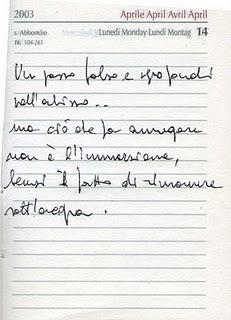 2003 Aprile April Avril April
s. Abbondio Lunedì Monday Lundi Montag 14
104-261
Un passo falso e sprofondi
nell'abisso..
ma ciò che fa annegare
non è l'immersione,
bensì il fatto di rimanere
sott'acqua.